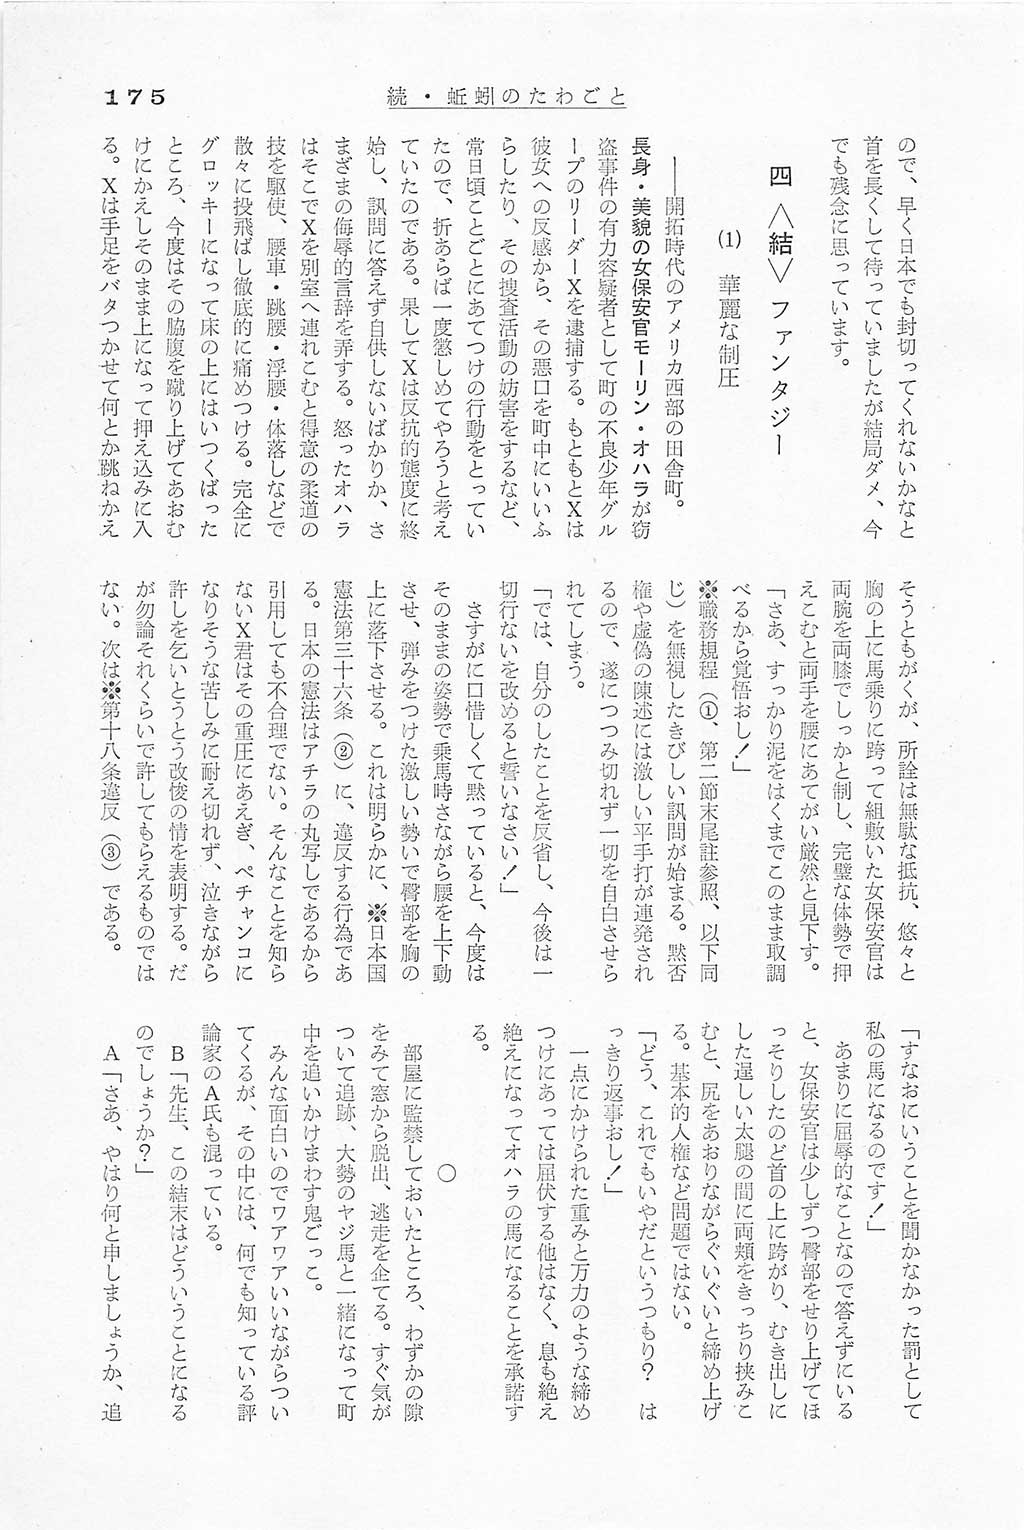 175
続・蚯蚓のたわごと
ので、早く日本でも封切ってくれないかなと
首を長くして待っていましたが結局ダメ、今
でも残念に思っています。
四 〈結〉 ファンタジー
(1) 華麗な制圧
――開拓時代のアメリカ西部の田舎町。
長身・美貌の女保安官モーリン・オハラが窃
盗事件の有力容疑者として町の不良少年グル
ープのリーダーXを逮捕する。もともとXは
彼女への反感から、その悪口を町中にいいふ
らしたり、その捜査活動の妨害をするなど、
常日頃ことごとにあてつけの行動をとってい
たので、折あらば一度懲しめてやろうと考え
ていたのである。果してXは反抗的態度に終
始し、訊問に答えず自供しないばかりか、さ
まざまの侮辱的言辞を弄する。怒ったオハラ
はそこでXを別室へ連れこむと得意の柔道の
技を駆使、腰車・跳腰・浮腰・体落しなどで
散々に投飛ばし徹底的に痛めつける。完全に
グロッキーになって床の上にはいつくばった
ところ、今度はその脇腹を蹴り上げてあおむ
けにかえしそのまま上になって押え込みに入
る。Xは手足をバタつかせて何とか跳ねかえ
そうともがくが、所詮は無駄な抵抗、悠々と
胸の上に馬乗りに跨って組敷いた女保安官は
両腕を両膝でしっかと制し、完璧な体勢で押
えこむと両手を腰にあてがい厳然と見下す。
「さあ、すっかり泥をはくまでこのまま取調
べるから覚悟おし！」
※職務規程（①、第二節末尾註参照、以下同
じ）を無視したきびしい訊問が始まる。黙否
権や虚偽の陳述には激しい平手打が連発され
るので、遂につつみ切れず一切を自白させら
れてしまう。
「では、自分のしたことを反省し、今後は一
切行ないを改めると誓いなさい！」
さすがに口惜しくて黙っていると、今度は
そのままの姿勢で乗馬時さながら腰を上下動
させ、弾みをつけた激しい勢いで臀部を胸の
上に落下させる。これは明らかに、※日本国
憲法第三十六条（②）に、違反する行為であ
る。日本の憲法はアチラの丸写しであるから
引用しても不合理でない。そんなことを知ら
ないX君はその重圧にあえぎ、ペチャンコに
なりそうな苦しみに耐え切れず、泣きながら
許しを乞いとうとう改悛の情を表明する。だ
が勿論それくらいで許してもらえるものでは
ない。次は※第十八条違反（③）である。
「すなおにいうことを聞かなかった罰として
私の馬になるのです！」
あまりに屈辱的なことなので答えずにいる
と、女保安官は少しずつ臀部をせり上げてほ
っそりしたのど首の上に跨がり、むき出しに
した逞しい太腿の間に両頬をきっちり挟みこ
むと、尻をあおりながらぐいぐいと締め上げ
る。基本的人権など問題ではない。
「どう、これでもいやだというつもり？　は
っきり返事おし！」
一点にかけられた重みと万力のような締め
つけにあっては屈伏する他はなく、息も絶え
絶えになってオハラの馬になることを承諾す
る。
○
部屋に監禁しておいたところ、わずかの隙
をみて窓から脱出、逃走を企てる。すぐ気が
ついて追跡、大勢のヤジ馬と一緒になって町
中を追いかけまわす鬼ごっこ。
みんな面白いのでワアワアいいながらつい
てくるが、その中には、何でも知っている評
論家のA氏も混っている。
B「先生、この結末はどういうことになる
のでしょうか？」
A「さあ、やはり何と申しましょうか、追